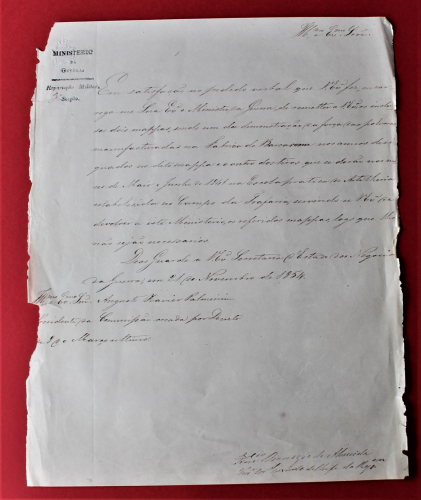 Ill.mo Ex.mo Snr.
MINISTERIO
da
GUERRA
Repartição Militar
Secção
Em satisfação ao pedido verbal que V.Ex.a fez, encar
rega-me Sua Ex.a o Ministro da Guerra, de remetter a V.Ex.a os inclu
sos dois mappas, sendo um da demonstração da força das polvoras
manufacturadas na Fabrica de Barcarena nos annos desi
gnados no dito mappa e o outro dos tiros que se derão nos me
zes de Maio e Junho de 1841 na Escola pratica de Artilheria
estabelecida no Campo da Trafaria, servindo-se V.Ex.a
devolver a este Ministerio, os referidos mappas, logo que lhe
não sejão necessarios.
Deos Guarde a V.Ex.a Secretaria d'Estado dos Negocios
da Guerra, em 21 de Novembro de 1854.
Ill.mo e Ex.mo Snr. Augusto Xavier Palmeirim
Presidente da Commissão creada por Decreto
de Março ultimo
de Almeida